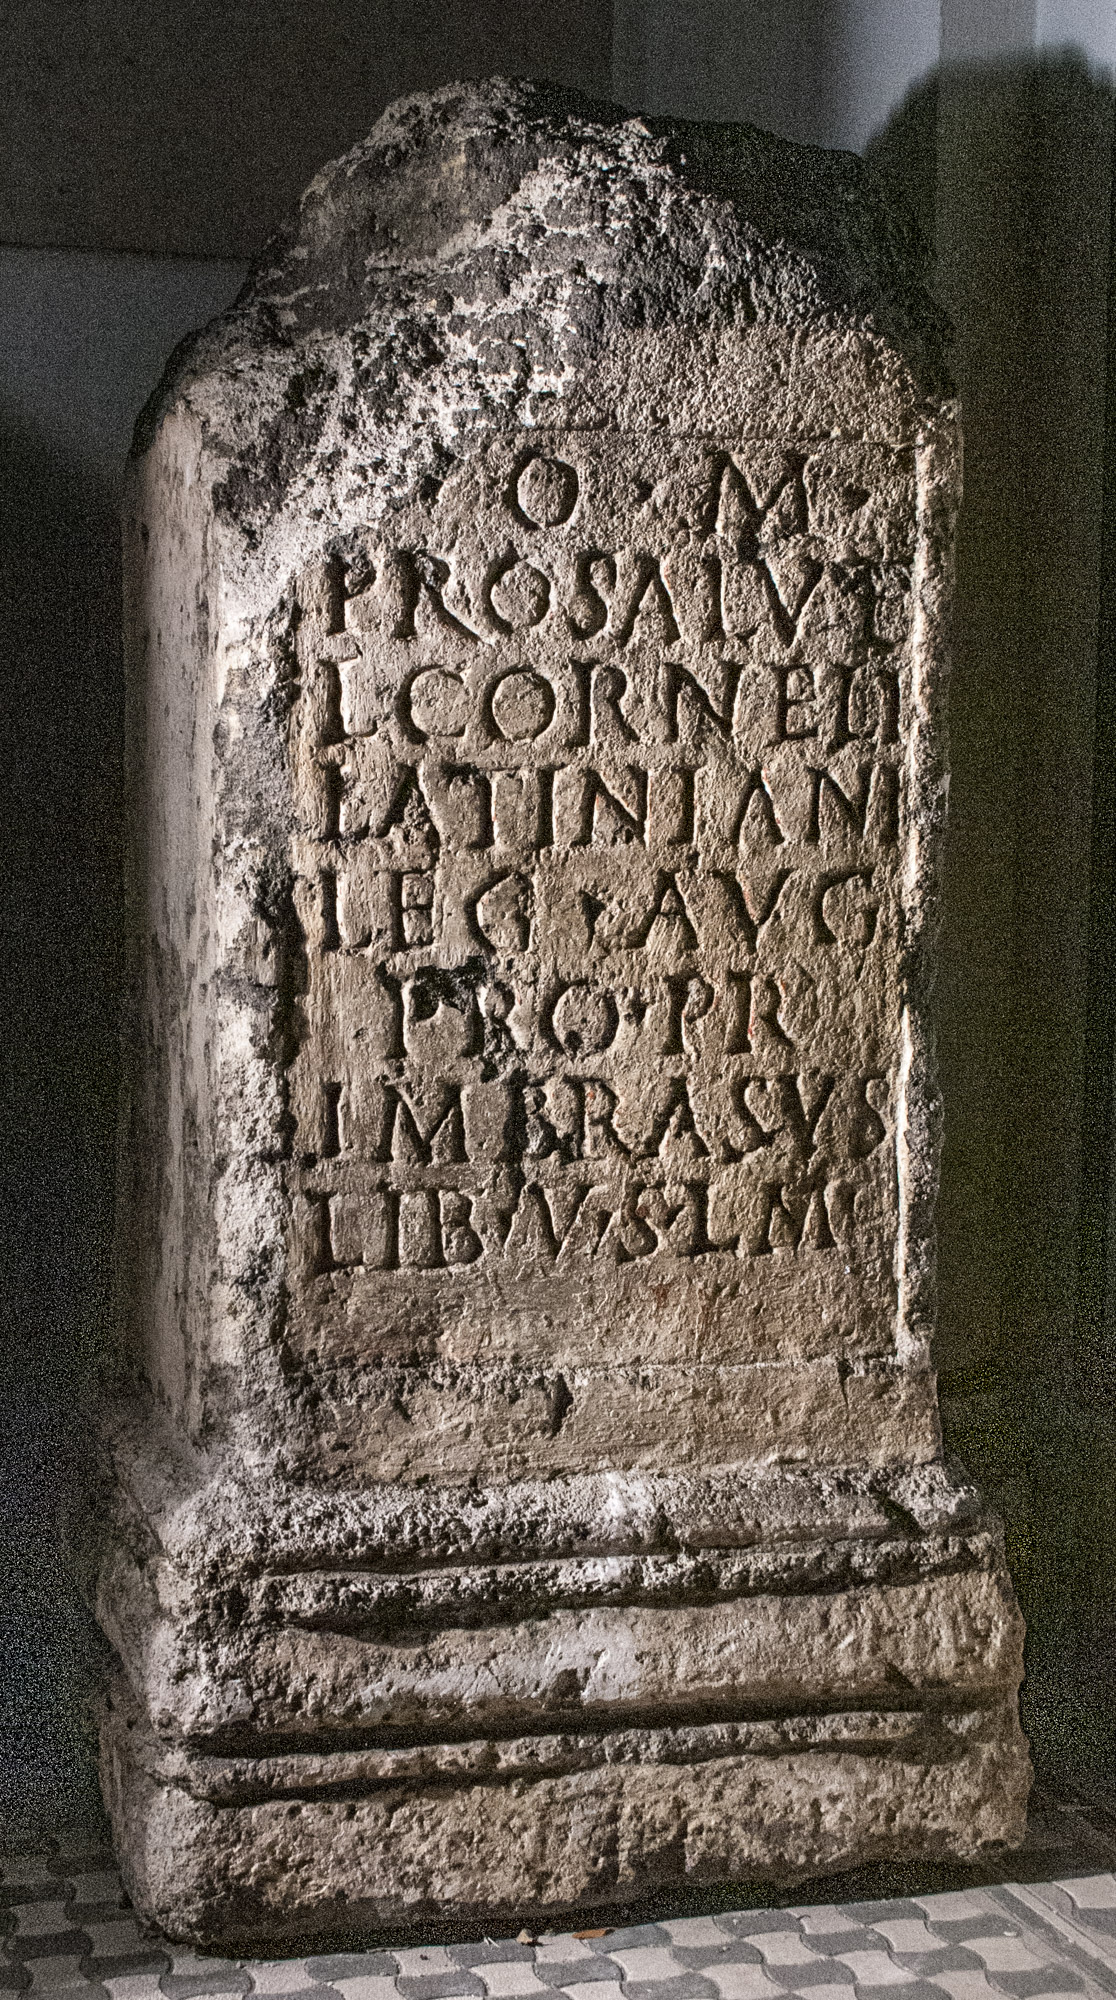 O · M ·
PROSALVTE
L CORNELI
LATINIANI
LEG · AVG
PRO · PR
IMBRASVS
LIBVSLM